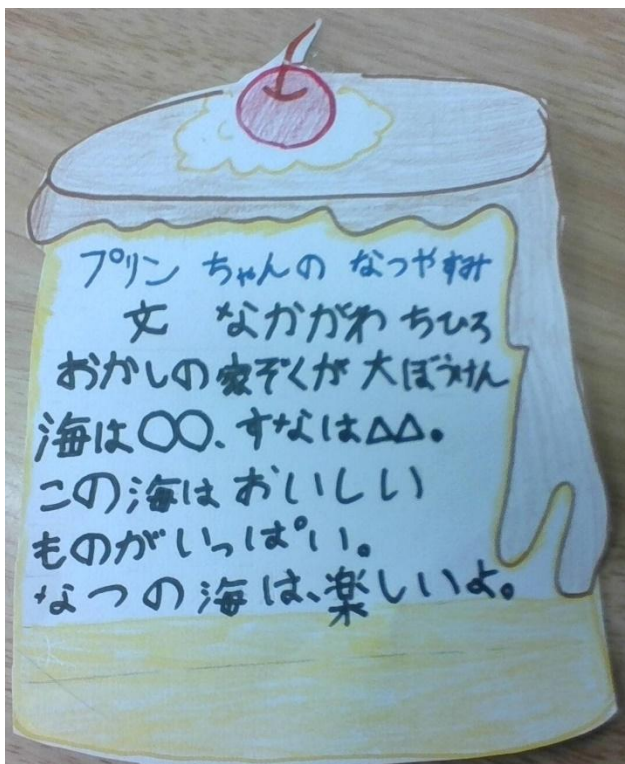 プリンちゃんの なつやすみ
文 なかがわ ちひろ
おかしの家ぞくが 大ぼうけん
海は〇〇、すなは△△。
この海は おいしい
ものがいっぱい。
なつの海は、楽しいよ。